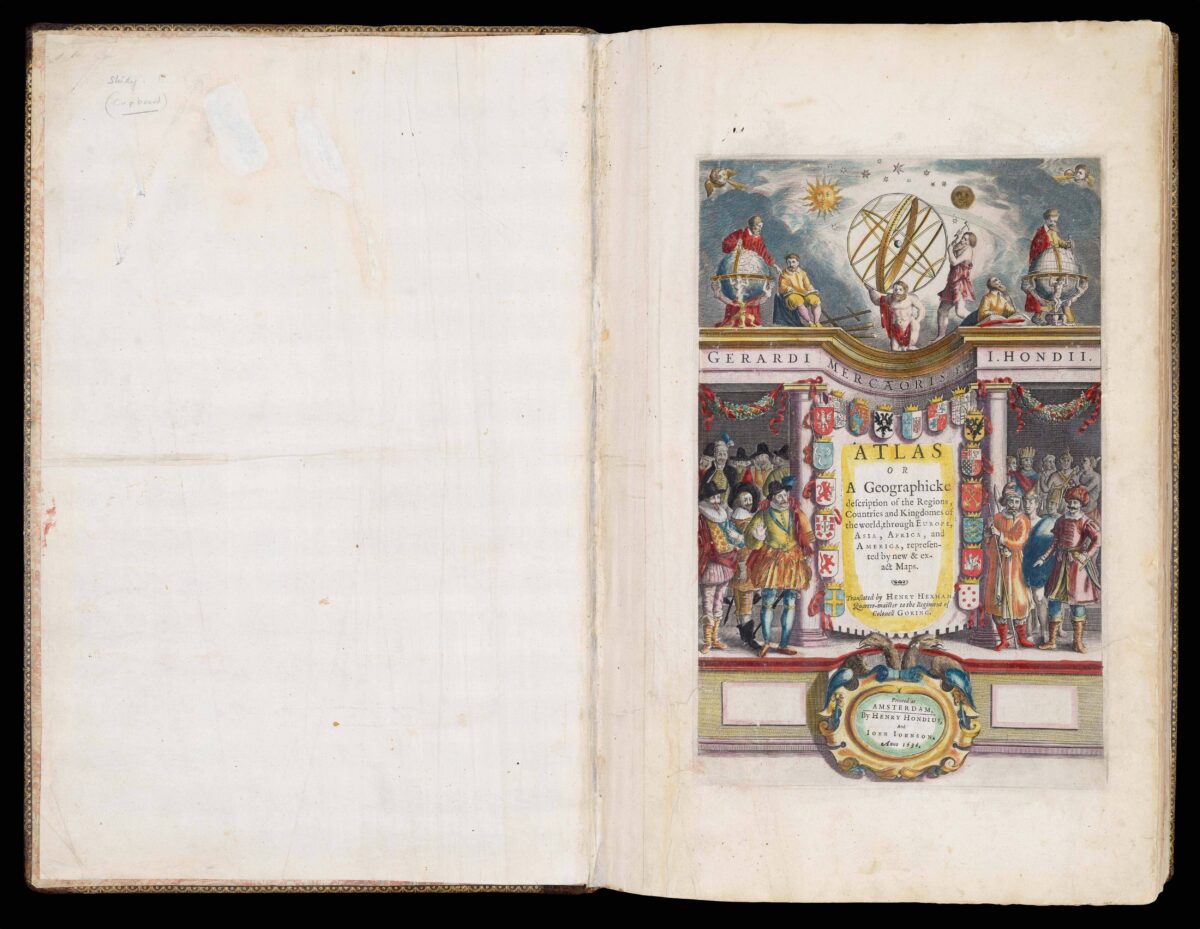 Study
(Cupboard)
GERARDI MERCAORIS ET I. HONDII.
ATLAS
OR
A Geographicke
description of the Regions,
Countries and Kingdomes of
the world, through EUROPE,
ASIA, AFRICA, and
AMERICA, represen-
ted by new & ex-
act Maps.
Translated by HENRY HEXHAM,
Quarter-maister to the Regiment of
Colonell GORING.
Printed at
AMSTERDAM,
By HENRY HONDIUS,
And
IOHN IOHNSON,
Anno 1636.